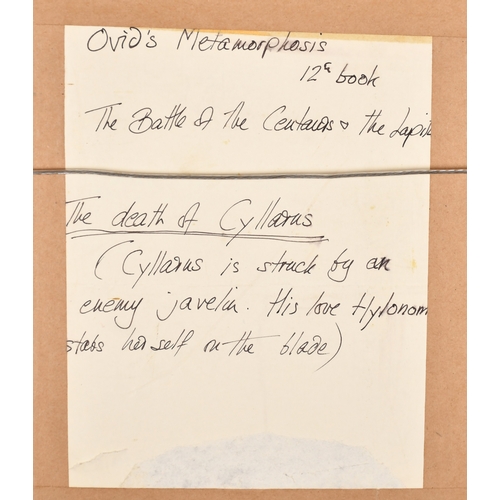 Ovid's Metamorphosis
12e book
The Battle of the Centaurs & the Lapit
The death of Cyllarus
(Cyllarus is struck by an
enemy javelin. His love Hylonom
stabs herself on the blade)